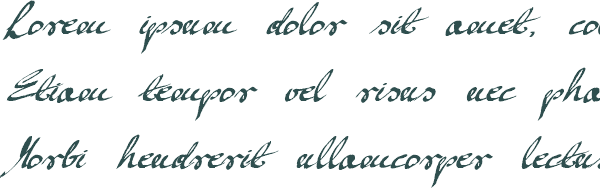 Lorem ipsum dolor sit amet, co
Etiam tempor vel risus nec pha
Morbi hendrerit ullamcorper lectus